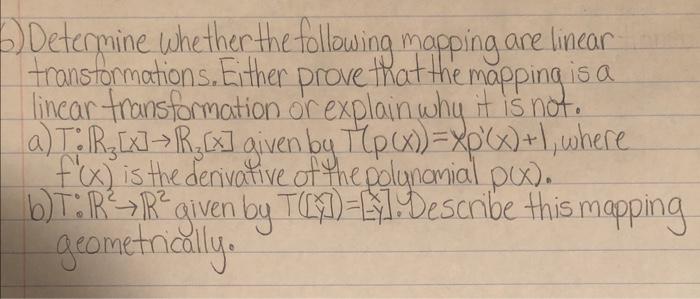 6) Determine whether the following mapping are linear
transformations. Either prove that the mapping is a
linear transformation or explain why it is not.
a) T: ℝ₃[x]→ℝ₃[x] given by T(p(x))=xp'(x)+1, where
f'(x) is the derivative of the polynomial p(x).
b) T: ℝ²→ℝ² given by T([x y])=[x -y]. Describe this mapping
geometrically.